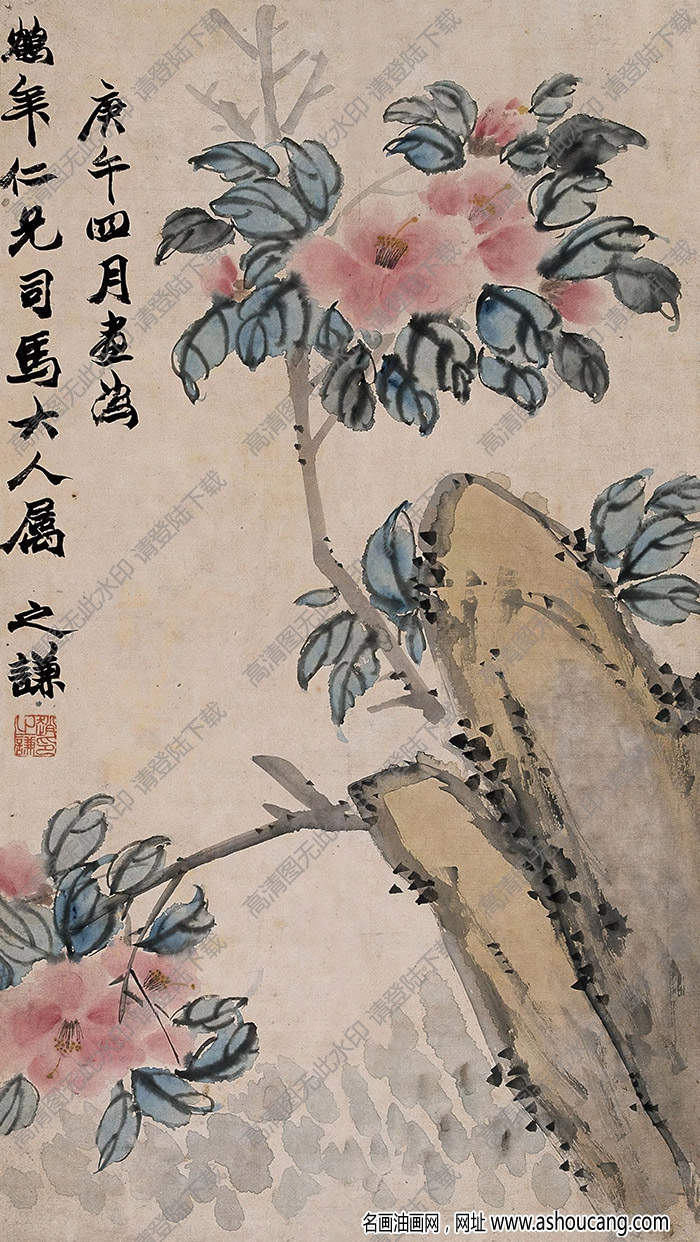 庚午四月画为
鹤年仁兄司馬大人属 之謙
趙之謙印
高清图无此水印 请登陆下载
名画油画网，网址 www.ashoucang.com